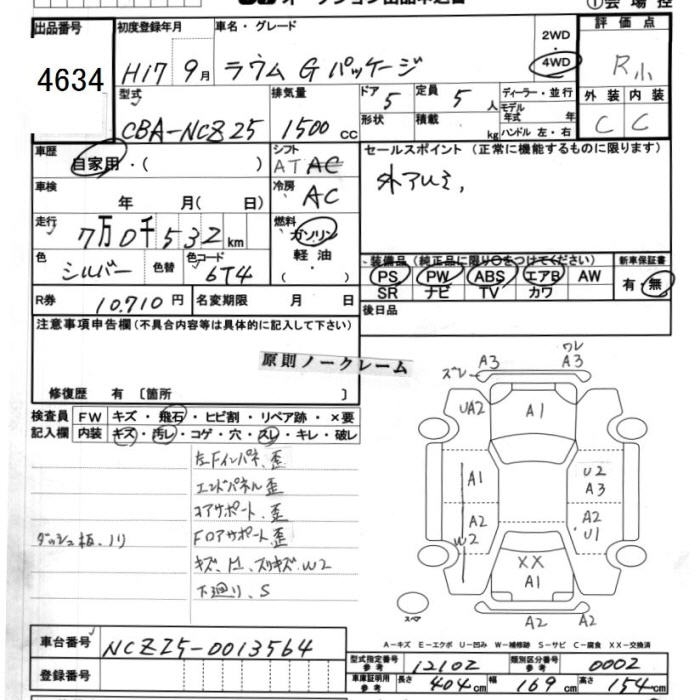 オークション出品申込書
①会場控
出品番号
4634
初度登録年月
H17 9月
車名・グレード
ラウム G パッケージ
2WD
4WD
評価点
R小
外装 内装
C C
型式
CBA-NCZ25
排気量
1500 cc
ドア 5
形状
定員 5 人
積載 kg
ディーラー・並行
モデル年式 年
ハンドル 左・右
車歴
自家用・( )
シフト
AT AC
セールスポイント (正常に機能するものに限ります)
外アルミ,
車検
年 月( 日)
冷房
AC
走行
7万0千532km
燃料
ガソリン
軽油・
( )
色
シルバー
色替
色コード
6T4
装備品 (純正品に限り○をつけてください)
PS PW ABS エアB AW
SR ナビ TV カワ
新車保証書
有・無
R券
10.710円
名変期限 月 日
後日品
注意事項申告欄(不具合内容等は具体的に記入して下さい)
原則ノークレーム
修復歴 有 〔箇所 〕
検査員
記入欄
FW キズ・飛石・ヒビ割・リペア跡・×要
内装 キズ・汚レ・コゲ・穴・スレ・キレ・破レ
左Fインパネ、歪
エンドパネル歪
コアサポート、歪
ダッシュ板、ノリ
FロアサポートQ歪
下廻り、S
ズレ A3
ワレ
A3
UA2
A1
A1
U2
A3
A2
W2
A2
U1
XX
A1
A2
A2
スペア
A-キズ E-エクボ U-凹み W-補修跡 S-サビ C-腐食 XX-交換済
車台番号
NCZ25-0013564
登録番号
型式指定番号 参考
12102
類別区分番号 参考
0002
車庫証明用 参考
長さ 404cm 幅 169cm 高さ 154cm